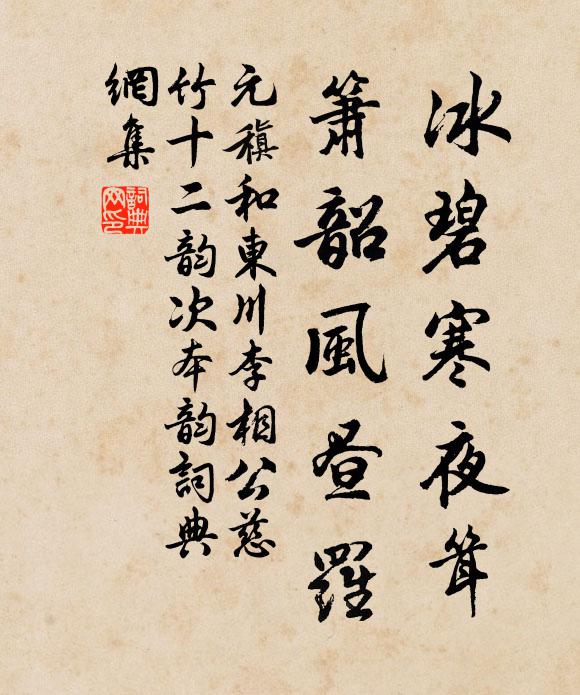 冰碧寒夜耸
簫韶風昼羅
元稹和東川李相公慈
竹十二韵次本韵詞典
網集
詞典
网印